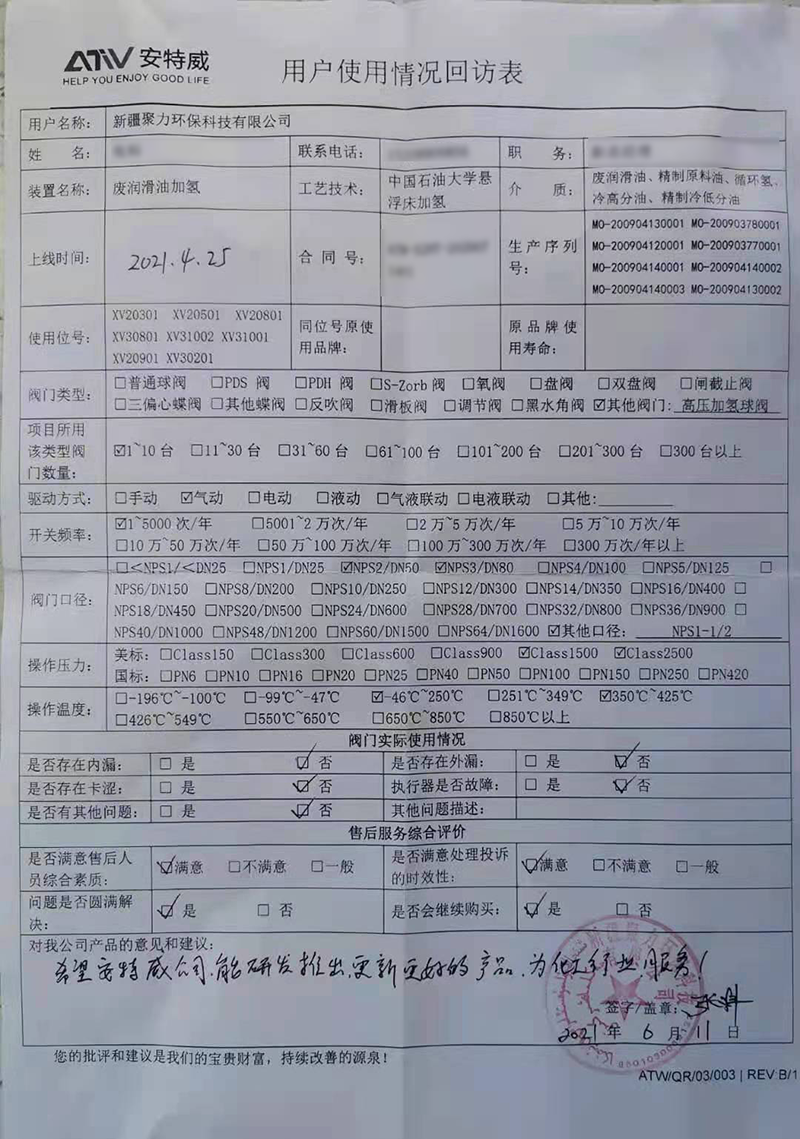 ATW 安特威
HELP YOU ENJOY GOOD LIFE
用户使用情况回访表
用户名称： 新疆聚力环保科技有限公司
姓 名： 联系电话： 职 务：
装置名称： 废润滑油加氢 工艺技术： 中国石油大学悬浮床加氢 介 质： 废润滑油、精制原料油、循环氢、冷高分油、精制冷低分油
上线时间： 2021.4.25 合 同 号： 生产序列号：
MO-200904130001 MO-200903780001
MO-200904120001 MO-200903770001
MO-200904140001 MO-200904140002
MO-200904140003 MO-200904130002
使用位号： XV20301 XV20501 XV20801
XV30801 XV31002 XV31001
XV20901 XV30201
同位号原使用品牌： 原品牌使用寿命：
阀门类型： □普通球阀 □PDS 阀 □PDH 阀 □S-Zorb 阀 □氧阀 □盘阀 □双盘阀 □闸截止阀
□三偏心蝶阀 □其他蝶阀 □反吹阀 □滑板阀 □调节阀 □黑水角阀 ☑其他阀门：高压加氢球阀
项目所用该类型阀门数量： ☑1~10 台 □11~30 台 □31~60 台 □61~100 台 □101~200 台 □201~300 台 □300 台以上
驱动方式： □手动 ☑气动 □电动 □液动 □气液联动 □电液联动 □其他：
开关频率： ☑1~5000 次/年 □5001~2 万次/年 □2 万~5 万次/年 □5 万~10 万次/年
□10 万~50 万次/年 □50 万~100 万次/年 □100 万~300 万次/年 □300 万次/年以上
阀门口径： □<NPS1/<DN25 □NPS1/DN25 ☑NPS2/DN50 ☑NPS3/DN80 □NPS4/DN100 □NPS5/DN125 □
NPS6/DN150 □NPS8/DN200 □NPS10/DN250 □NPS12/DN300 □NPS14/DN350 □NPS16/DN400 □
NPS18/DN450 □NPS20/DN500 □NPS24/DN600 □NPS28/DN700 □NPS32/DN800 □NPS36/DN900 □
NPS40/DN1000 □NPS48/DN1200 □NPS60/DN1500 □NPS64/DN1600 ☑其他口径： NPS1-1/2
操作压力： 美标：□Class150 □Class300 □Class600 □Class900 ☑Class1500 ☑Class2500
国标：□PN6 □PN10 □PN16 □PN20 □PN25 □PN40 □PN50 □PN100 □PN150 □PN250 □PN420
操作温度： □-196℃~-100℃ □-99℃~-47℃ ☑-46℃~250℃ □251℃~349℃ ☑350℃~425℃
□426℃~549℃ □550℃~650℃ □650℃~850℃ □850℃以上
阀门实际使用情况
是否存在内漏： □ 是 ☑ 否 是否存在外漏： □ 是 ☑ 否
是否存在卡涩： □ 是 ☑ 否 执行器是否故障： □ 是 ☑ 否
是否有其他问题： □ 是 ☑ 否 其他问题描述：
售后服务综合评价
是否满意售后人员综合素质： ☑满意 □不满意 □一般 是否满意处理投诉的时效性： ☑满意 □不满意 □一般
问题是否圆满解决： ☑ 是 □ 否 是否会继续购买： ☑ 是 □ 否
对我公司产品的意见和建议：
希望安特威公司，能研发推出更新更好的产品，为化工行业服务！
签字/盖章：
2021 年 6 月 11 日
您的批评和建议是我们的宝贵财富，持续改善的源泉！
ATW/QR/03/003 | REV:B/1